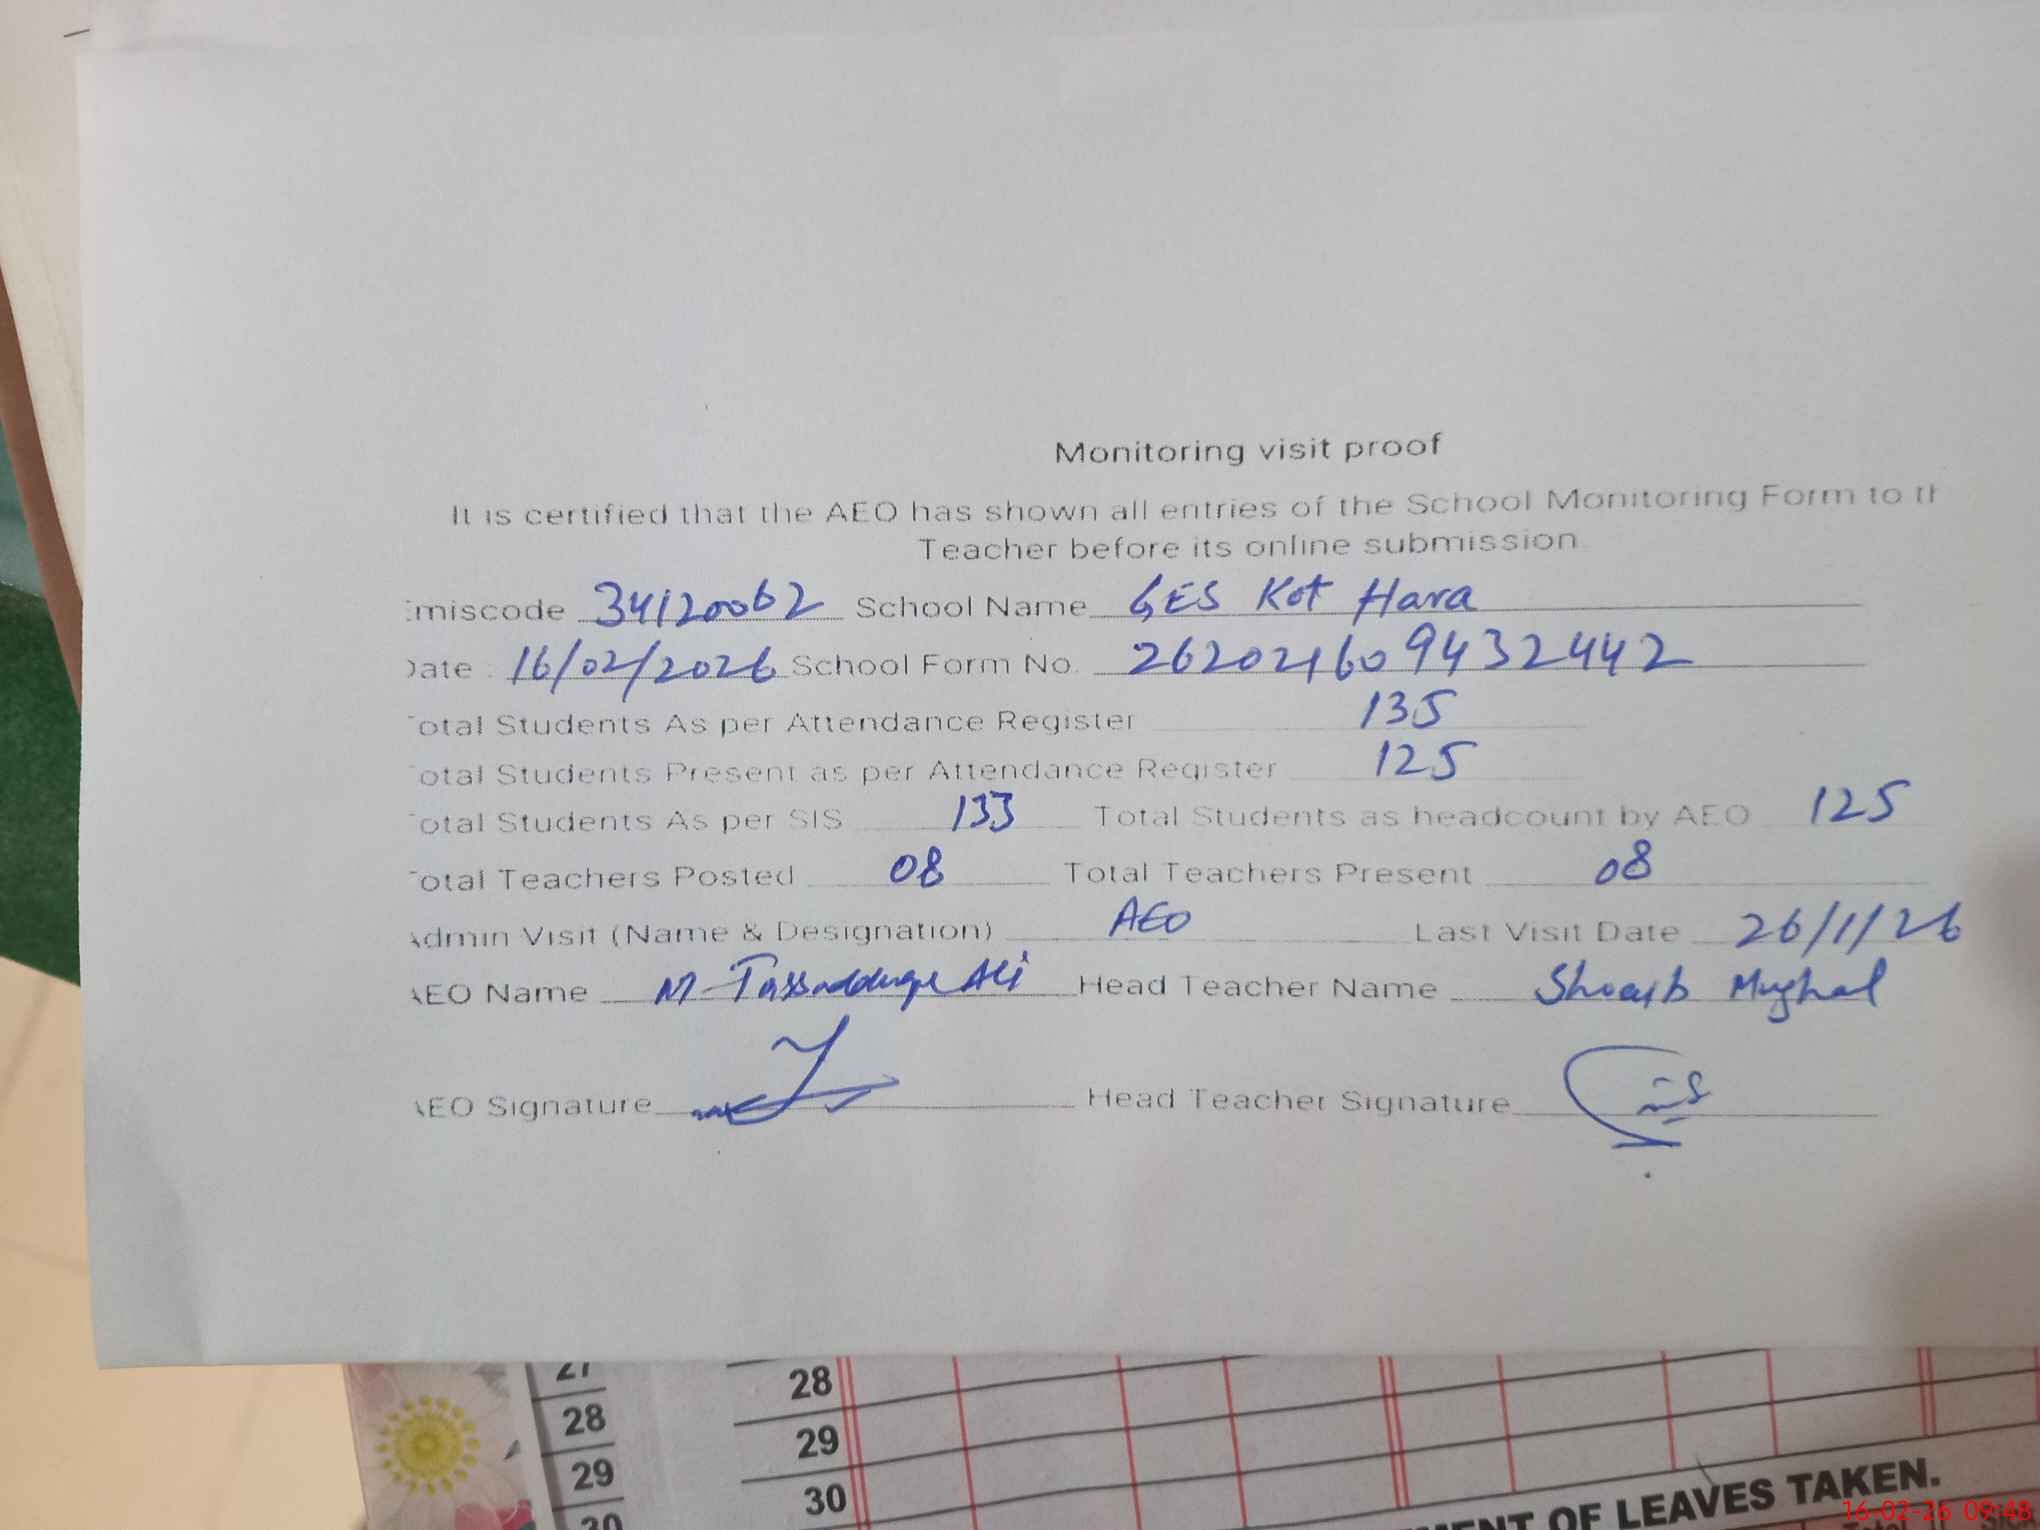 Monitoring visit proof
It is certified that the AEO has shown all entries of the School Monitoring Form to th
Teacher before its online submission
Emiscode 34120062 School Name GES Kot Hara
Date : 16/02/2026 School Form No. 262021609432442
Total Students As per Attendance Register 135
Total Students Present as per Attendance Register 125
Total Students As per SIS 133 Total Students as headcount by AEO 125
Total Teachers Posted 08 Total Teachers Present 08
Admin Visit (Name & Designation) AEO Last Visit Date 26/1/26
AEO Name M Tassadduqe Ali Head Teacher Name Shoaib Mughal
AEO Signature Head Teacher Signature
27 28
28 29
29 30
30
MENT OF LEAVES TAKEN.
16-02-26 09:48